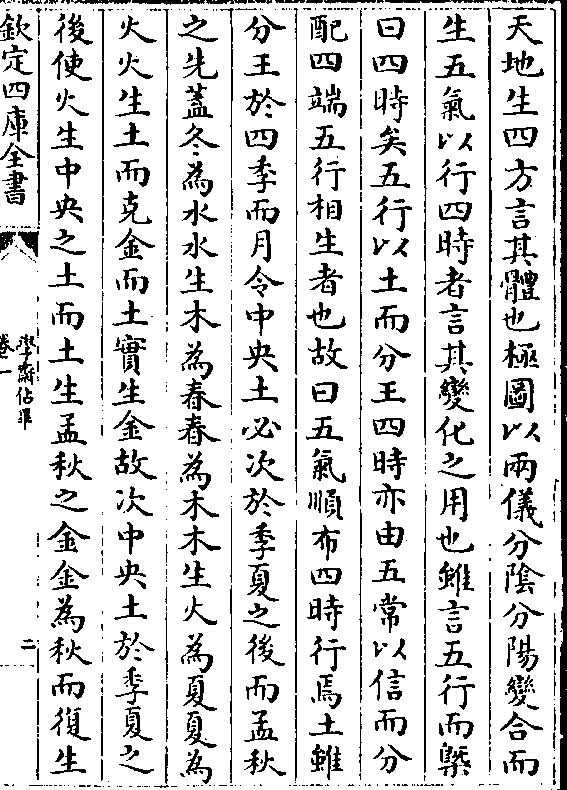 天地生四方言其體也極圖以兩儀分陰分陽變合而
生五氣以行四時者言其變化之用也雖言五行而槩
曰四時矣五行以土而分王四時亦由五常以信而分
配四端五行相生者也故曰五氣順布四時行焉土雖
分王於四季而月令中央土必次於季夏之後而孟秋
之先蓋冬為水水生木為春春為木木生火為夏夏為
火火生土而克金而土實生金故次中央土於季夏之
後使火生中央之土而土生孟秋之金金為秋而復生
欽定四庫全書
學齋佔畢
卷一
二